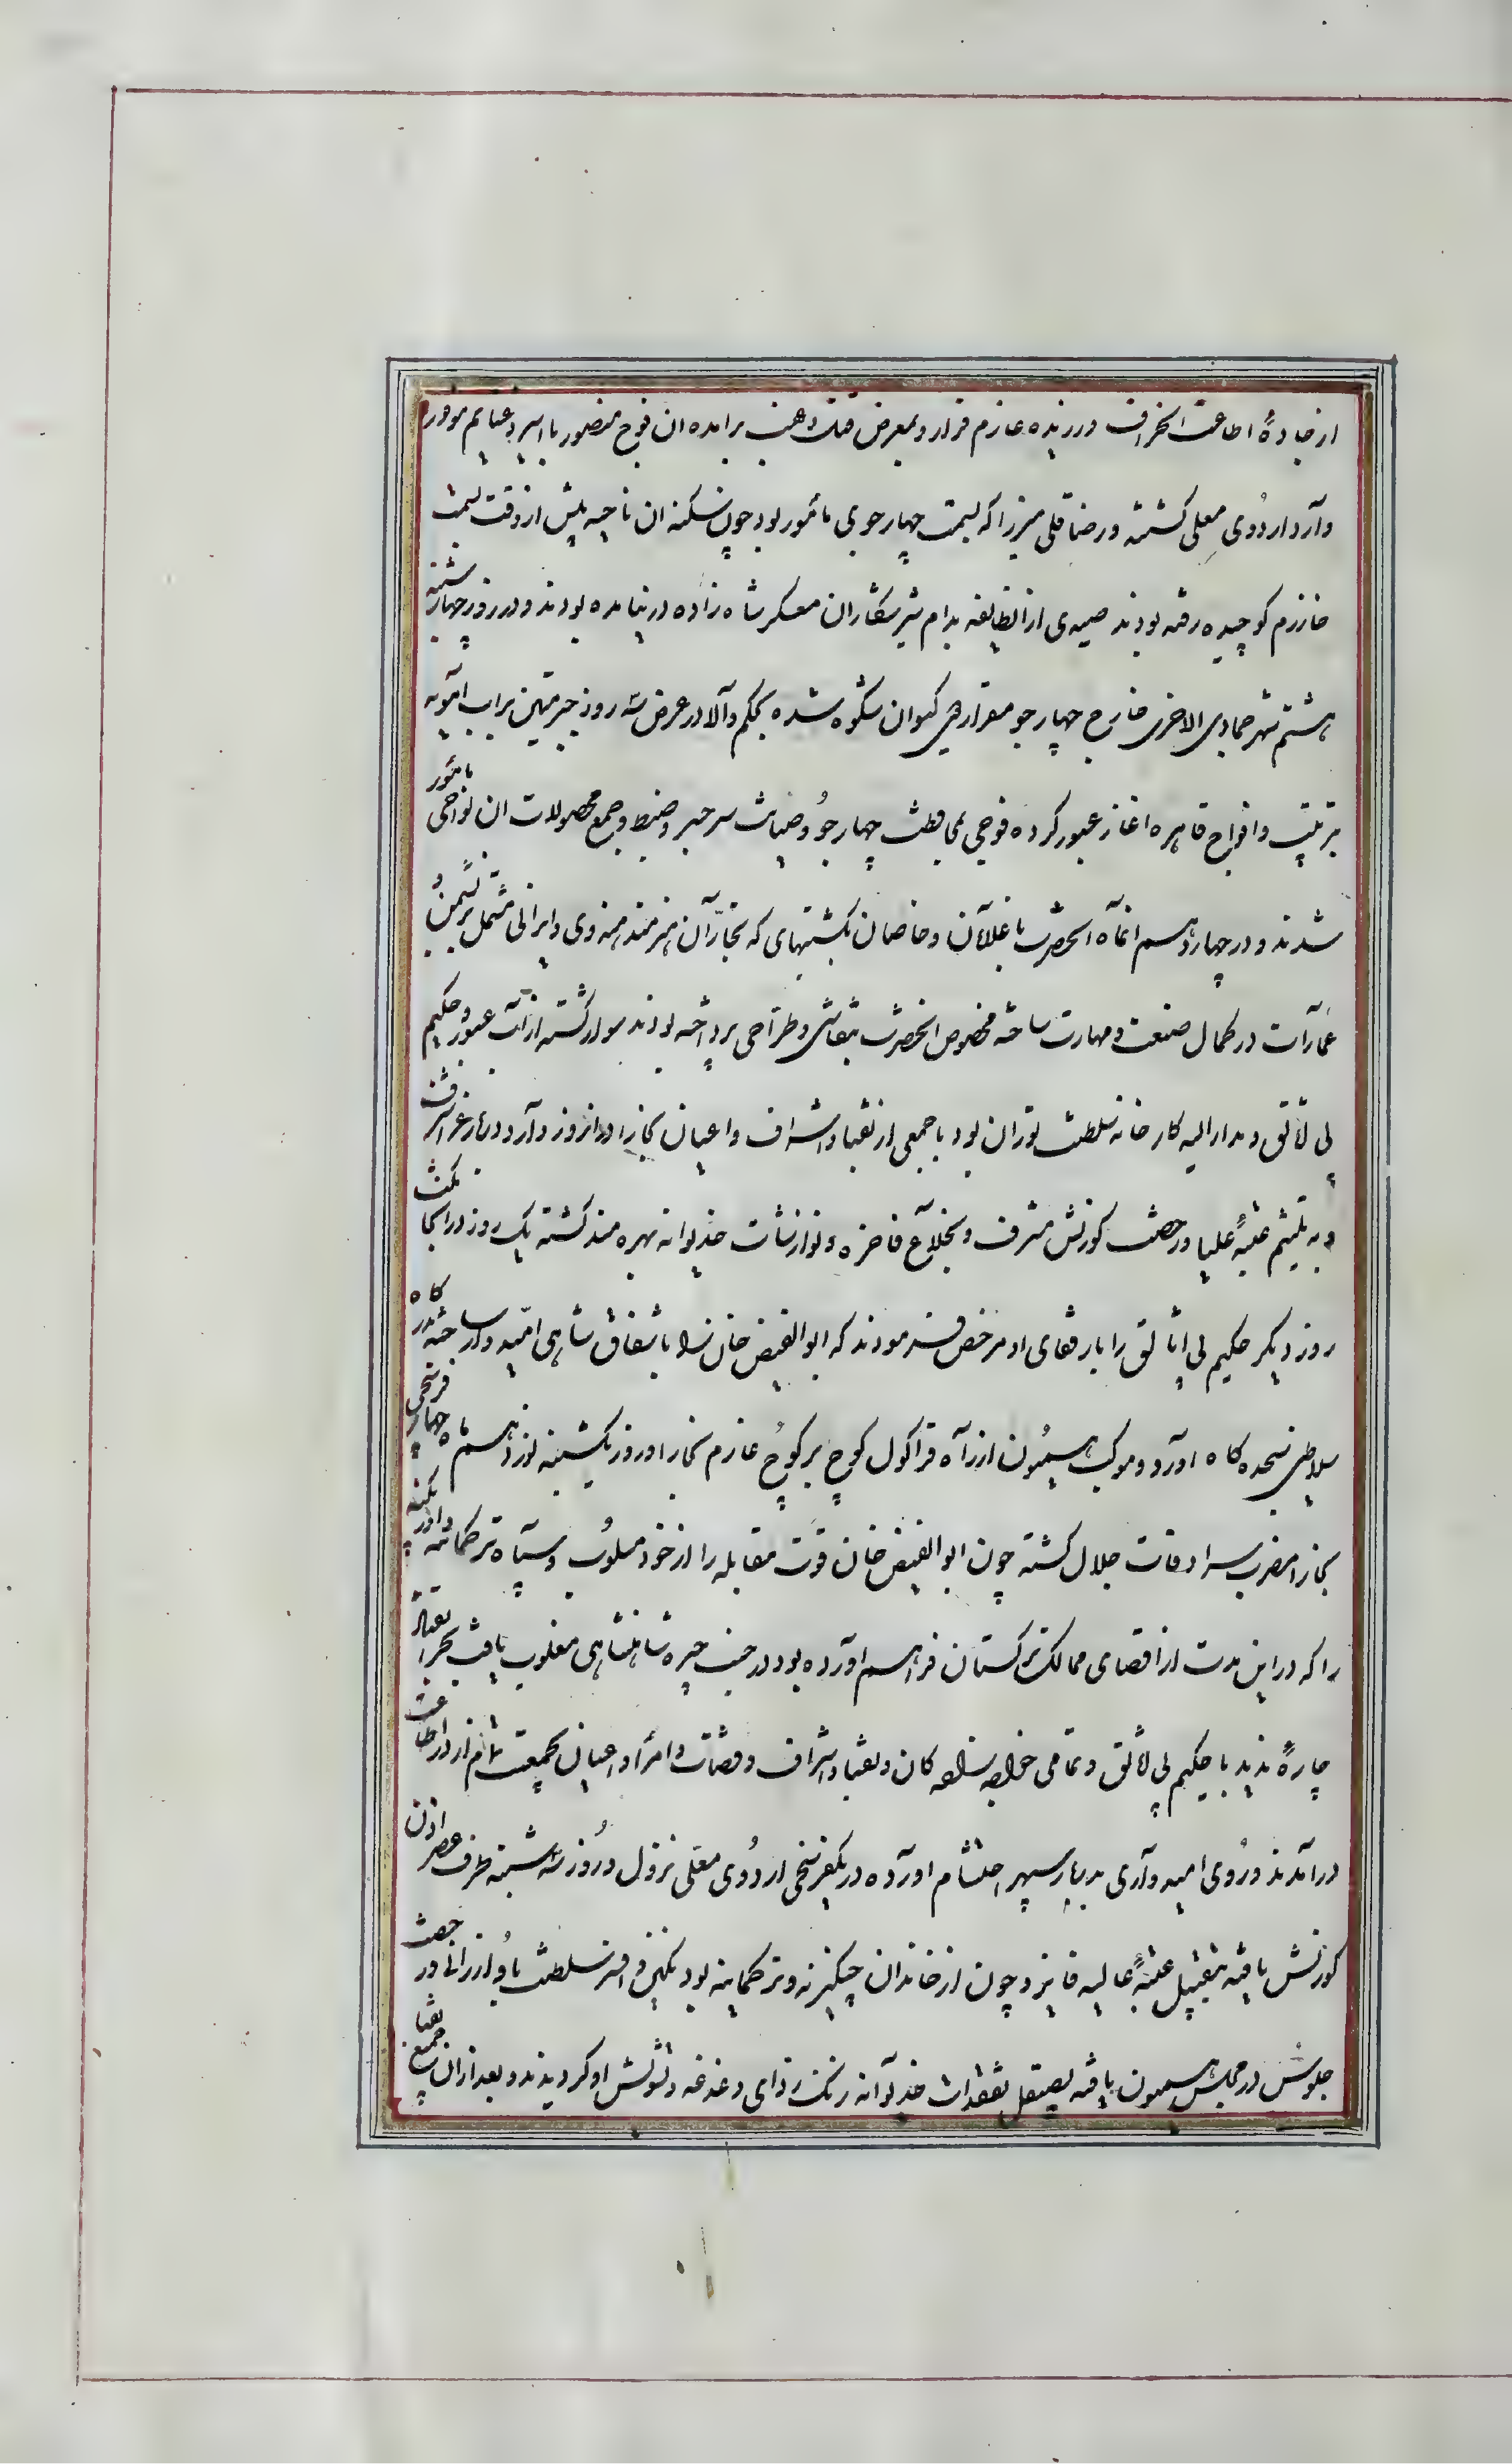 از جادهٔ اطاعت انحراف ورزیده عازم فرار و بمعرض قتل و نهب برامده ان فوج منصور با اسیر و غنایم موفور
وارد اردوی معلی کشته و رضا قلی میرزا که بسمت چهارجوی مأمور بود چون سکنه ان ناحیه پیش از وقت بسمت
خارزم کوچیده رفته بودند صیدی از انطایفه بدام شیرشکاران معسکر شاه زاده درنیامده بودند و در روز چهارشنبه
هشتم شهر جمادی الاخری خارج چهارجو مقر اردوی کیوان شکوه شده بحکم والا در عرض سه روز جسر متین بر اب امویه
ترتیب و افواج قاهره اغاز عبور کرده فوجی بمحافظت چهارجو و صیانت سر جسر و ضبط و جمع محصولات ان نواحی مامور
شدند و در چهاردهم انماه انحضرت با غلامان و خاصان بکشتیهای که نجاران هنرمند هندوی و ایرانی مشتمل بر نشیمن و
عمارات در کمال صنعت و مهارت ساخته مخصوص انحضرت بنقاشی و طراحی پرداخته بودند سوار کشته از آب عبور و حکیم
بی اتالق و مدار الیه کارخانه سلطنت توران بود با جمعی از نقبا و اشراف و اعیان بخارا در انروز وارد دربار عز و شرف
و به تلثیم عتبهٔ علیا و رخصت کورنش مشرف و بخلاع فاخره و نوازشات خدیوانه بهره مند کشته یک روز در انجا مکث
روز دیکر حکیم بی اتالق را با رفقای او مرخص فرمودند که ابو الفیض خان را باشفاق شاهی امیدوار ساخته بدرکاه
سلاطین سجده کاه اورد و موکب همیون از راه قراکول کوچ بر کوچ عازم بخارا و روز یکشنبه نوزدهم ماه چهار فرسخی
بخارا مضرب سرادقات جلال کشته چون ابو الفیض خان قوت مقابله را از خود مسلوب و سپاه ترکمانیه و اوزبکیه
را که در این مدت از اقصای ممالک ترکستان فراهم اورده بود در جنب جیره شاهنشاهی مغلوب یافت بجز انقیاد
چارهٔ ندید با حکیم بی اتالق و تمامی خواجه سراجه کان و نقبا و اشراف و قضات و امرا و اعیان بجمعیت تمام از در اطاعت
درامدند و روی امیدواری بدربار سپهر احتشام اورده در یکفرسخی اردوی معلی نزول و روز سه شنبه طرف عصر اذن
کورنش یافته بتقبیل عتبهٔ عالیه فایز و چون از خاندان چنکیزیه و ترکمانیه بود نکین و افسر سلطنت باو ارزانی و رخصت
جلوس در مجلس همیون یافته بصیقل تفقدات خدیوانه زنک زدای دغدغه و تشویش او کردیدند و بعد از ان جمیع نقبا